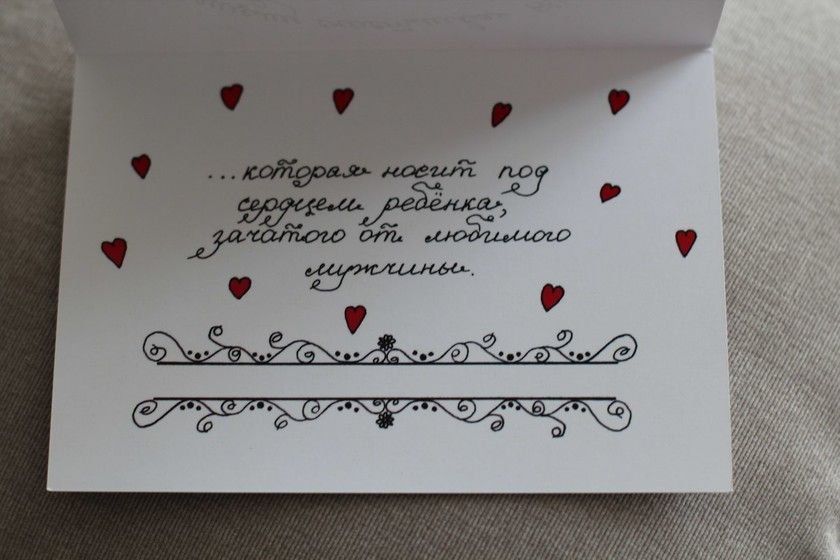 ...которая носит под
сердцем ребёнка,
зачатого от любимого
мужчины.